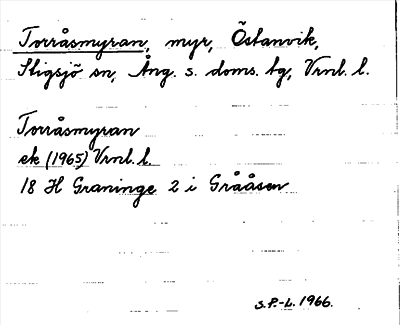 Torråsmyran, myr, Östanvik,
Stigsjö sn, Ång. s. doms. tg, Vrnl. l.
Torråsmyran
ek (1965) Vrnl. l.
18 H Graninge 2 i Grååsen
S.P.-L. 1966.